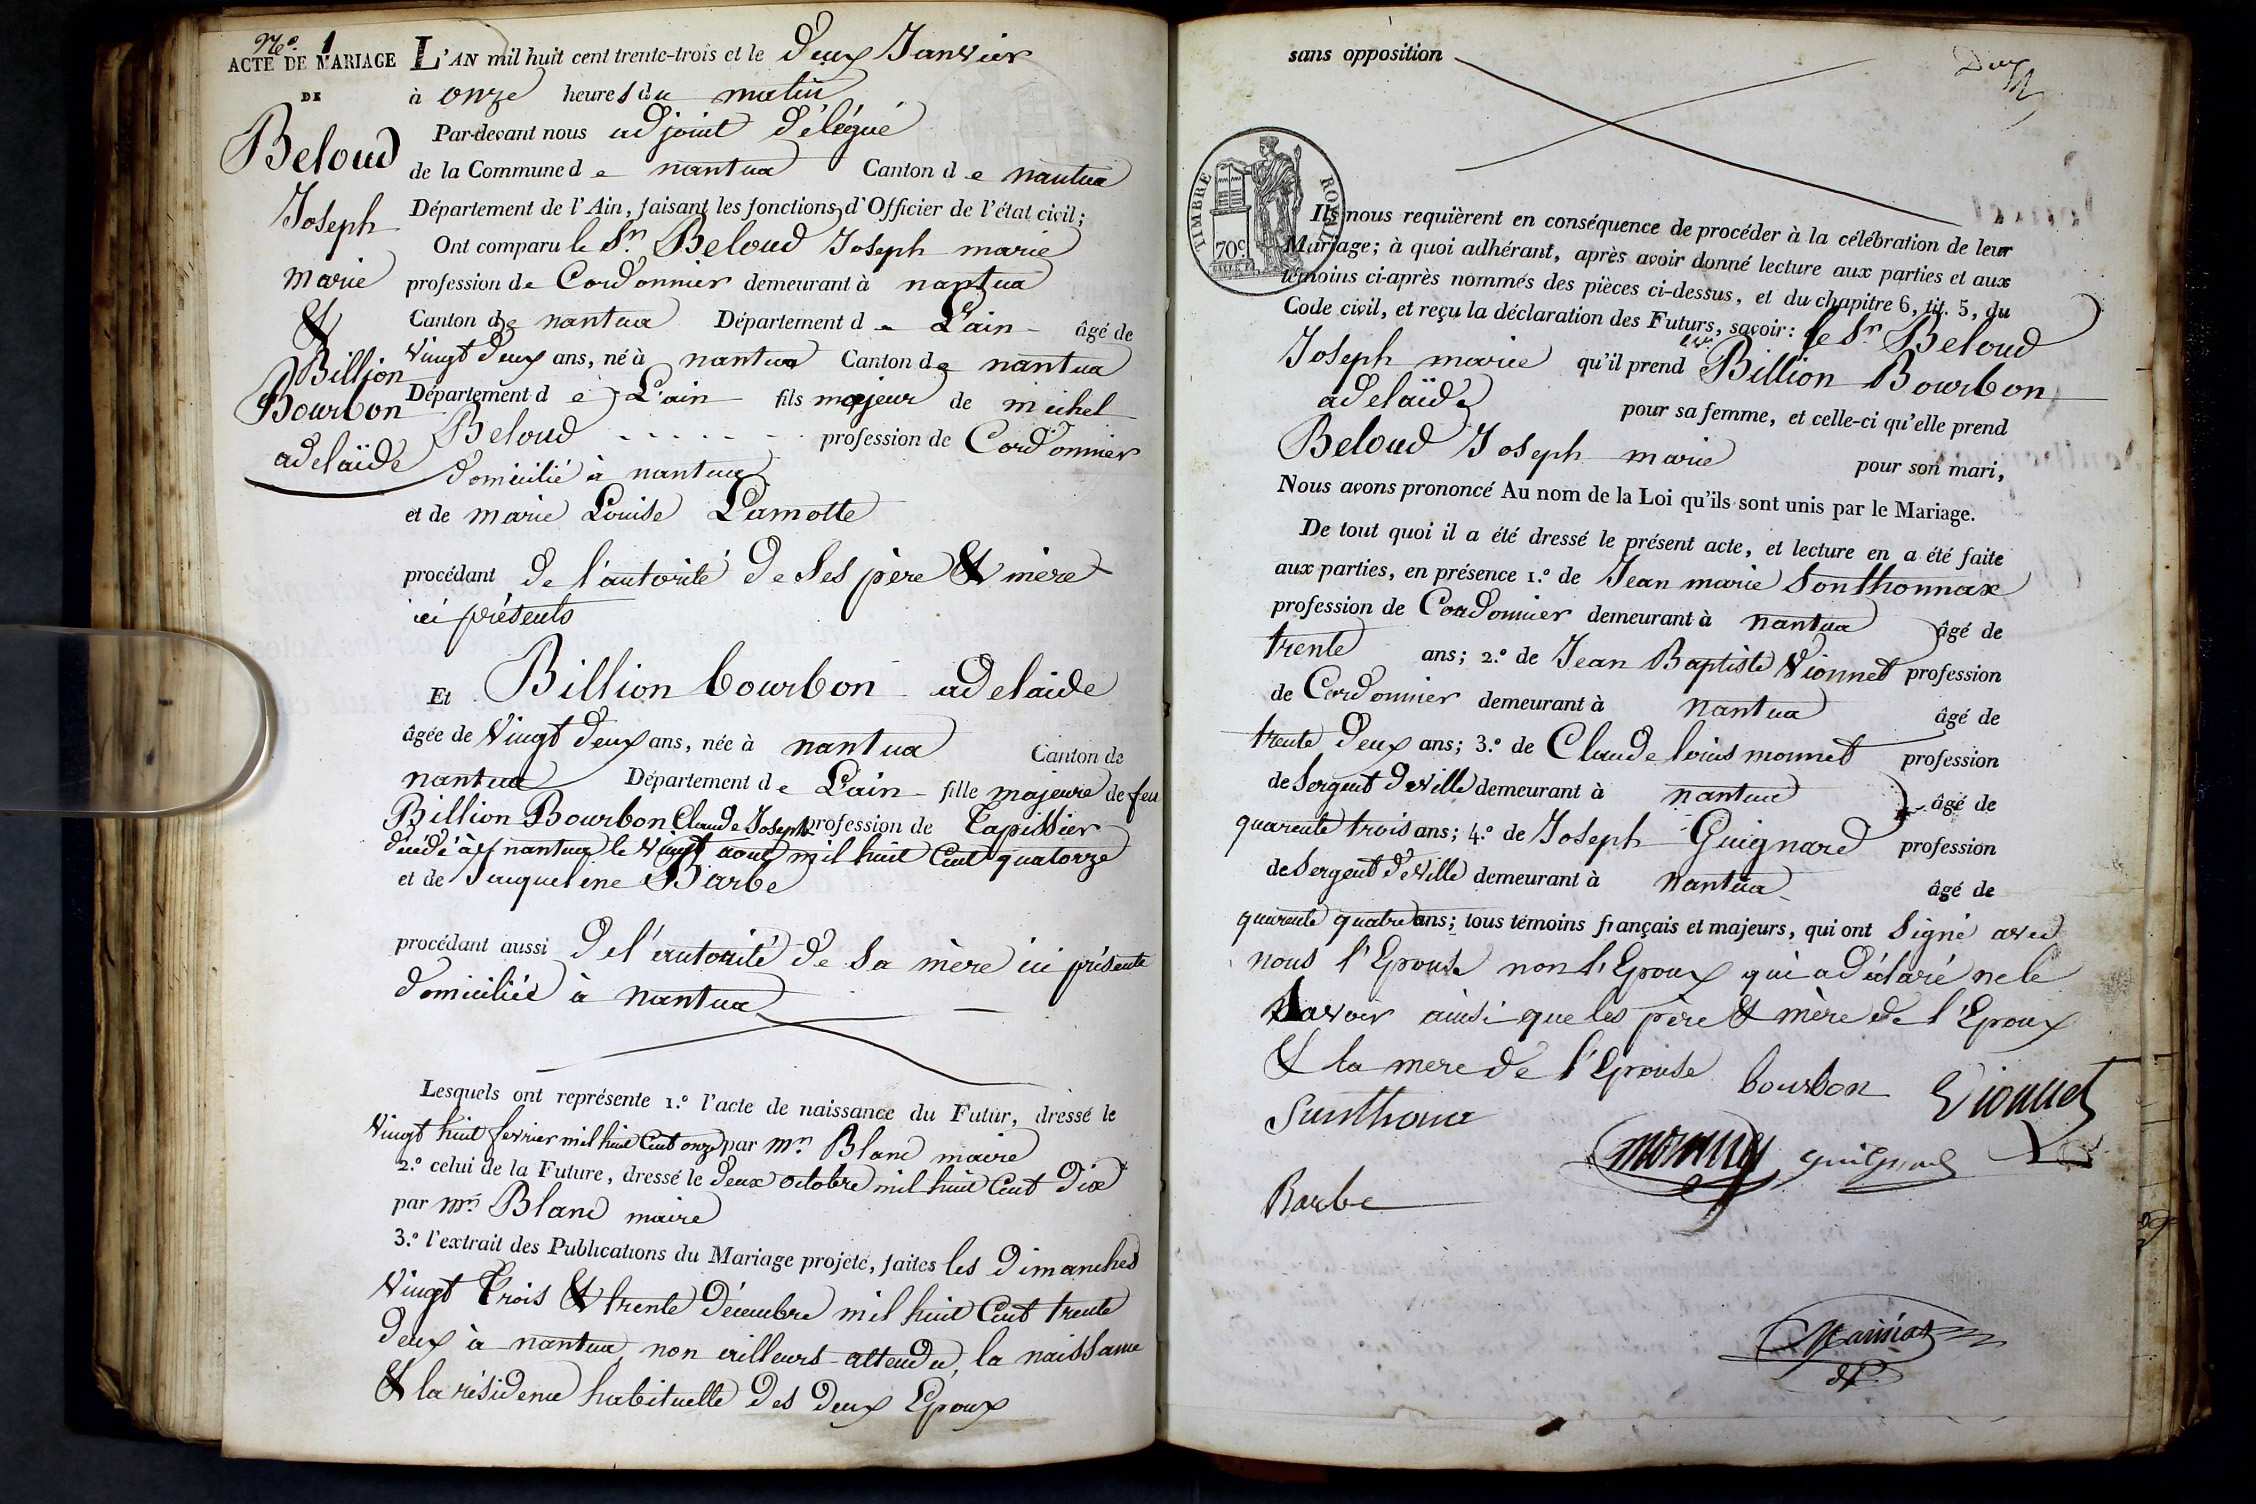 N.º 1
ACTE DE MARIAGE
DE
Beloud
Joseph
marie
&
Billion
Bourbon
adelaïde
L'AN mil huit cent trente-trois et le deux Janvier
à onze heures du matin
Par-devant nous adjoint délégué
de la Commune de nantua Canton de nantua
Département de l'Ain, faisant les fonctions d'Officier de l'état civil;
Ont comparu le Sr Beloud Joseph marie
profession de Cordonnier demeurant à nantua
Canton de nantua Département de L'ain âgé de
vingt deux ans, né à nantua Canton de nantua
Département de L'ain fils majeur de michel
Beloud - - - - - - profession de Cordonnier
domicilié à nantua
et de marie Louise Lamotte
procédant de l'autorité de ses père & mère
ici présents
Et Billion bourbon adelaide
âgée de vingt deux ans, née à nantua Canton de
nantua Département de L'ain fille majeure de feu
Billion Bourbon Claude Joseph profession de Tapissier
décédé à nantua le vingt aout mil huit Cent quatorze
et de Jaqueline Barbe
procédant aussi de l'autorité de sa mère ici présente
domiciliée à nantua
Lesquels ont représenté 1.º l'acte de naissance du Futur, dressé le
vingt huit fevrier mil huit Cent onze par mr Blanc maire
2.º celui de la Future, dressé le deux octobre mil huit Cent dix
par mr Blanc maire
3.º l'extrait des Publications du Mariage projeté, faites les dimanches
vingt trois & trente décembre mil huit Cent trente
deux à nantua, non ailleurs attendu, la naissance
& la résidence habituelle des deux Epoux
sans opposition
Deux
TIMBRE ROYAL
70c.
Ils nous requièrent en conséquence de procéder à la célébration de leur
Mariage; à quoi adhérant, après avoir donné lecture aux parties et aux
témoins ci-après nommés des pièces ci-dessus, et du chapitre 6, tit. 5, du
Code civil, et reçu la déclaration des Futurs, savoir: le Sr Beloud
Joseph marie qu'il prend Billion Bourbon
adelaïde pour sa femme, et celle-ci qu'elle prend
Beloud Joseph marie pour son mari,
Nous avons prononcé Au nom de la Loi qu'ils sont unis par le Mariage.
De tout quoi il a été dressé le présent acte, et lecture en a été faite
aux parties, en présence 1.º de Jean marie Sonthonnax
profession de Cordonnier demeurant à nantua âgé de
trente ans; 2.º de Jean Baptiste Vionnet profession
de Cordonnier demeurant à nantua âgé de
trente deux ans; 3.º de Claude louis monnet profession
de Sergent de ville demeurant à nantua âgé de
quarente trois ans; 4.º de Joseph Guignard profession
de Sergent de ville demeurant à nantua âgé de
quarente quatre ans; tous témoins français et majeurs, qui ont signé avec
nous l'Epouse non l'Epoux qui a déclaré ne le
savoir ainsi que les père & mère de l'Epoux
& la mere de l'Epouse bourbon Vionnet
Sunthona
monnet guignard
Barbe